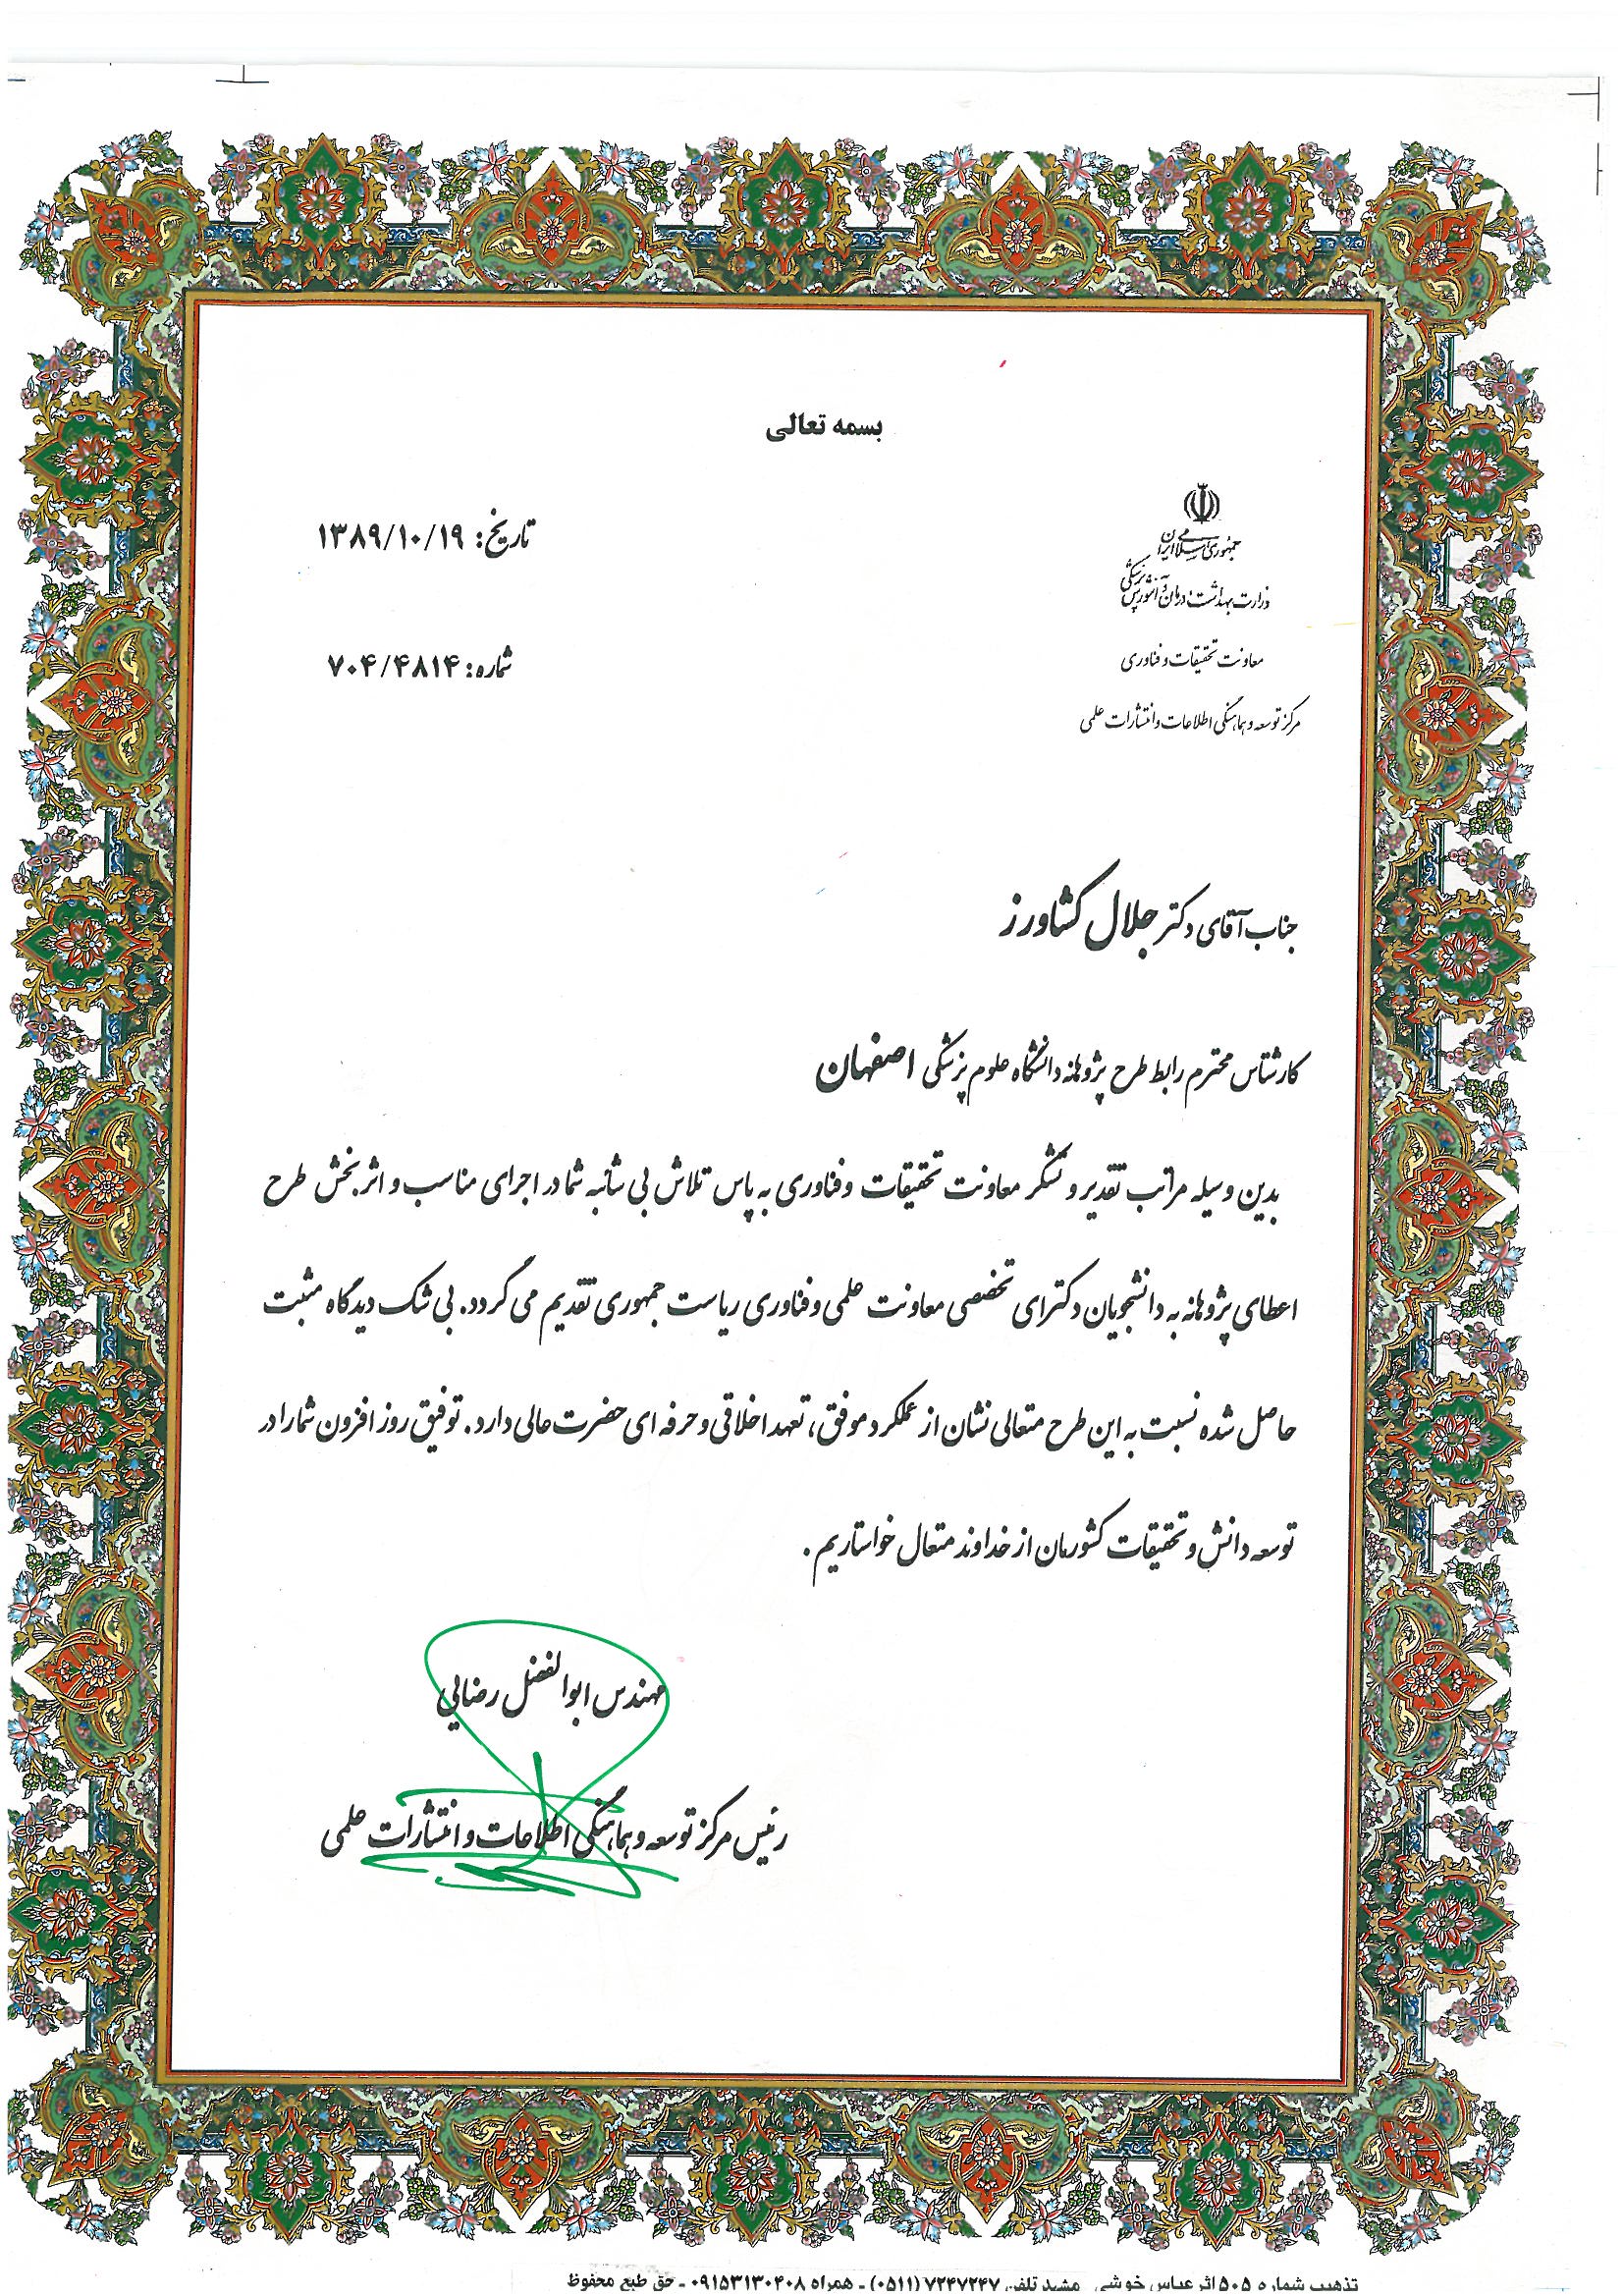 بسمه تعالی
جمهوری اسلامی ایران
وزارت بهداشت، درمان و آموزش پزشکی
معاونت تحقیقات و فناوری
مرکز توسعه و هماهنگی اطلاعات و انتشارات علمی
تاریخ: ۱۳۸۹/۱۰/۱۹
شماره: ۷۰۴/۴۸۱۴
جناب آقای دکتر جلال کشاورز
کارشناس محترم رابط طرح پژوهانه دانشگاه علوم پزشکی اصفهان
بدین وسیله مراتب تقدیر و تشکر معاونت تحقیقات و فناوری به پاس تلاش بی شائبه شما در اجرای مناسب و اثربخش طرح
اعطای پژوهانه به دانشجویان دکترای تخصصی معاونت علمی و فناوری ریاست جمهوری تقدیم می گردد. بی شک دیدگاه مثبت
حاصل شده نسبت به این طرح متعالی نشان از عملکرد موفق، تعهد اخلاقی و حرفه ای حضرت عالی دارد. توفیق روز افزون شما را در
توسعه دانش و تحقیقات کشورمان از خداوند متعال خواستاریم.
مهندس ابوالفضل رضایی
رئیس مرکز توسعه و هماهنگی اطلاعات و انتشارات علمی
تذهیب شماره ۵۰۵ اثر عباس خوشی مشهد تلفن ۷۲۴۷۲۴۷ (۰۵۱۱) - همراه ۰۹۱۵۳۱۳۰۴۰۸ - حق طبع محفوظ